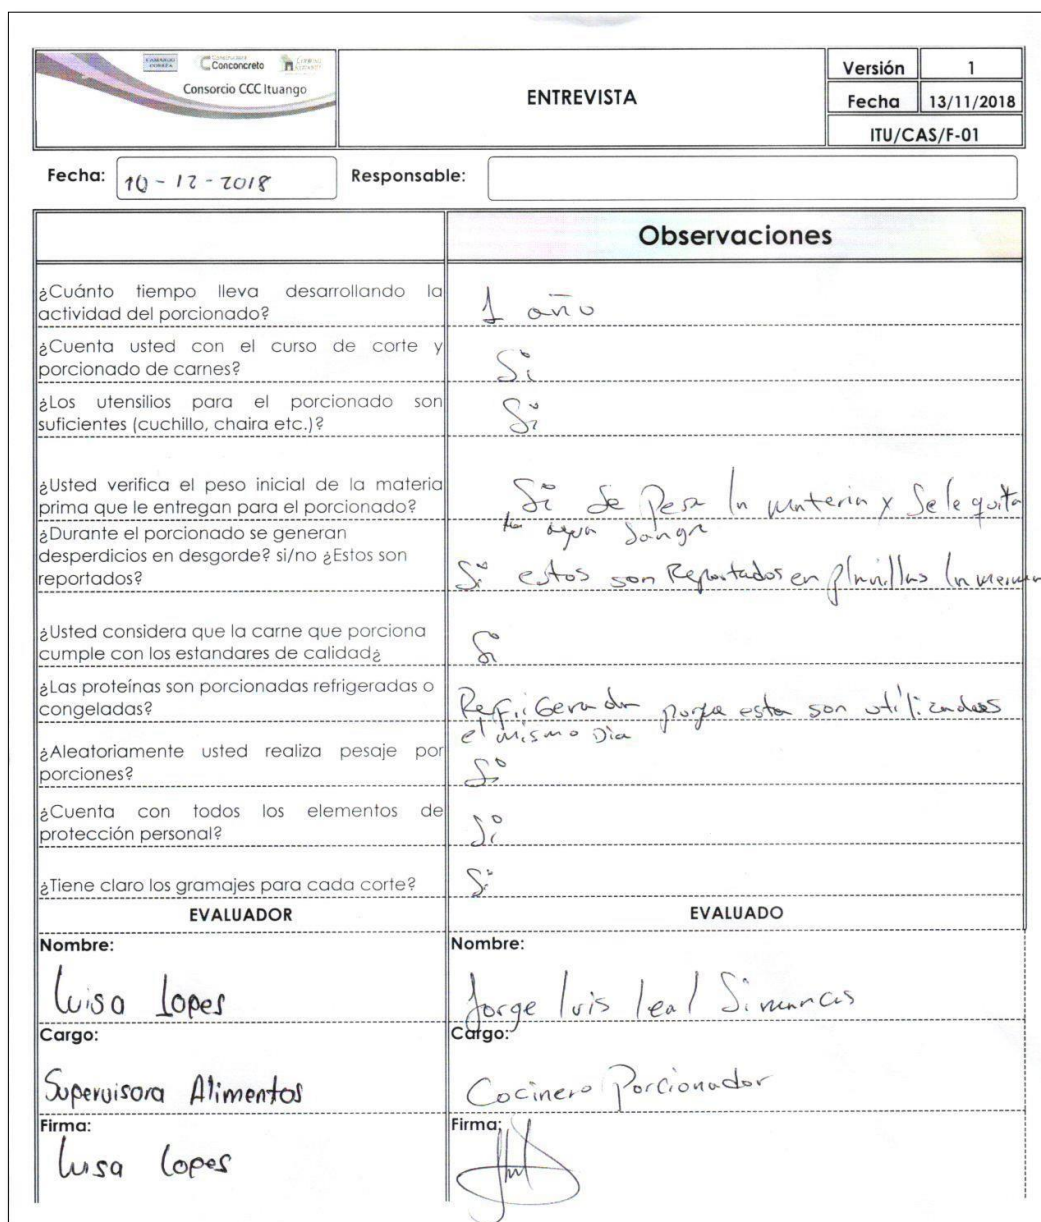 Conconcreto
Consorcio CCC Ituango
ENTREVISTA
Versión 1
Fecha 13/11/2018
ITU/CAS/F-01
Fecha: 10-12-2018 Responsable:
Observaciones
¿Cuánto tiempo lleva desarrollando la
actividad del porcionado?
1 año
¿Cuenta usted con el curso de corte y
porcionado de carnes?
Si
¿Los utensilios para el porcionado son
suficientes (cuchillo, chaira etc.)?
Si
¿Usted verifica el peso inicial de la materia
prima que le entregan para el porcionado?
Si Se Pesa la materia y Se le quita
agua Sangre
¿Durante el porcionado se generan
desperdicios en desgorde? si/no ¿Estos son
reportados?
Si estos son Reportados en planillas la merma
¿Usted considera que la carne que porciona
cumple con los estandares de calidad¿
Si
¿Las proteínas son porcionadas refrigeradas o
congeladas?
Refrigerada porque esta son utilizadas
el mismo Dia
¿Aleatoriamente usted realiza pesaje por
porciones?
Si
¿Cuenta con todos los elementos de
protección personal?
Si
¿Tiene claro los gramajes para cada corte?
Si
EVALUADOR EVALUADO
Nombre: Nombre:
Luisa Lopes Jorge luis leal Simancas
Cargo: Cargo:
Supervisora Alimentos Cocinero Porcionador
Firma: Firma:
Luisa Lopes